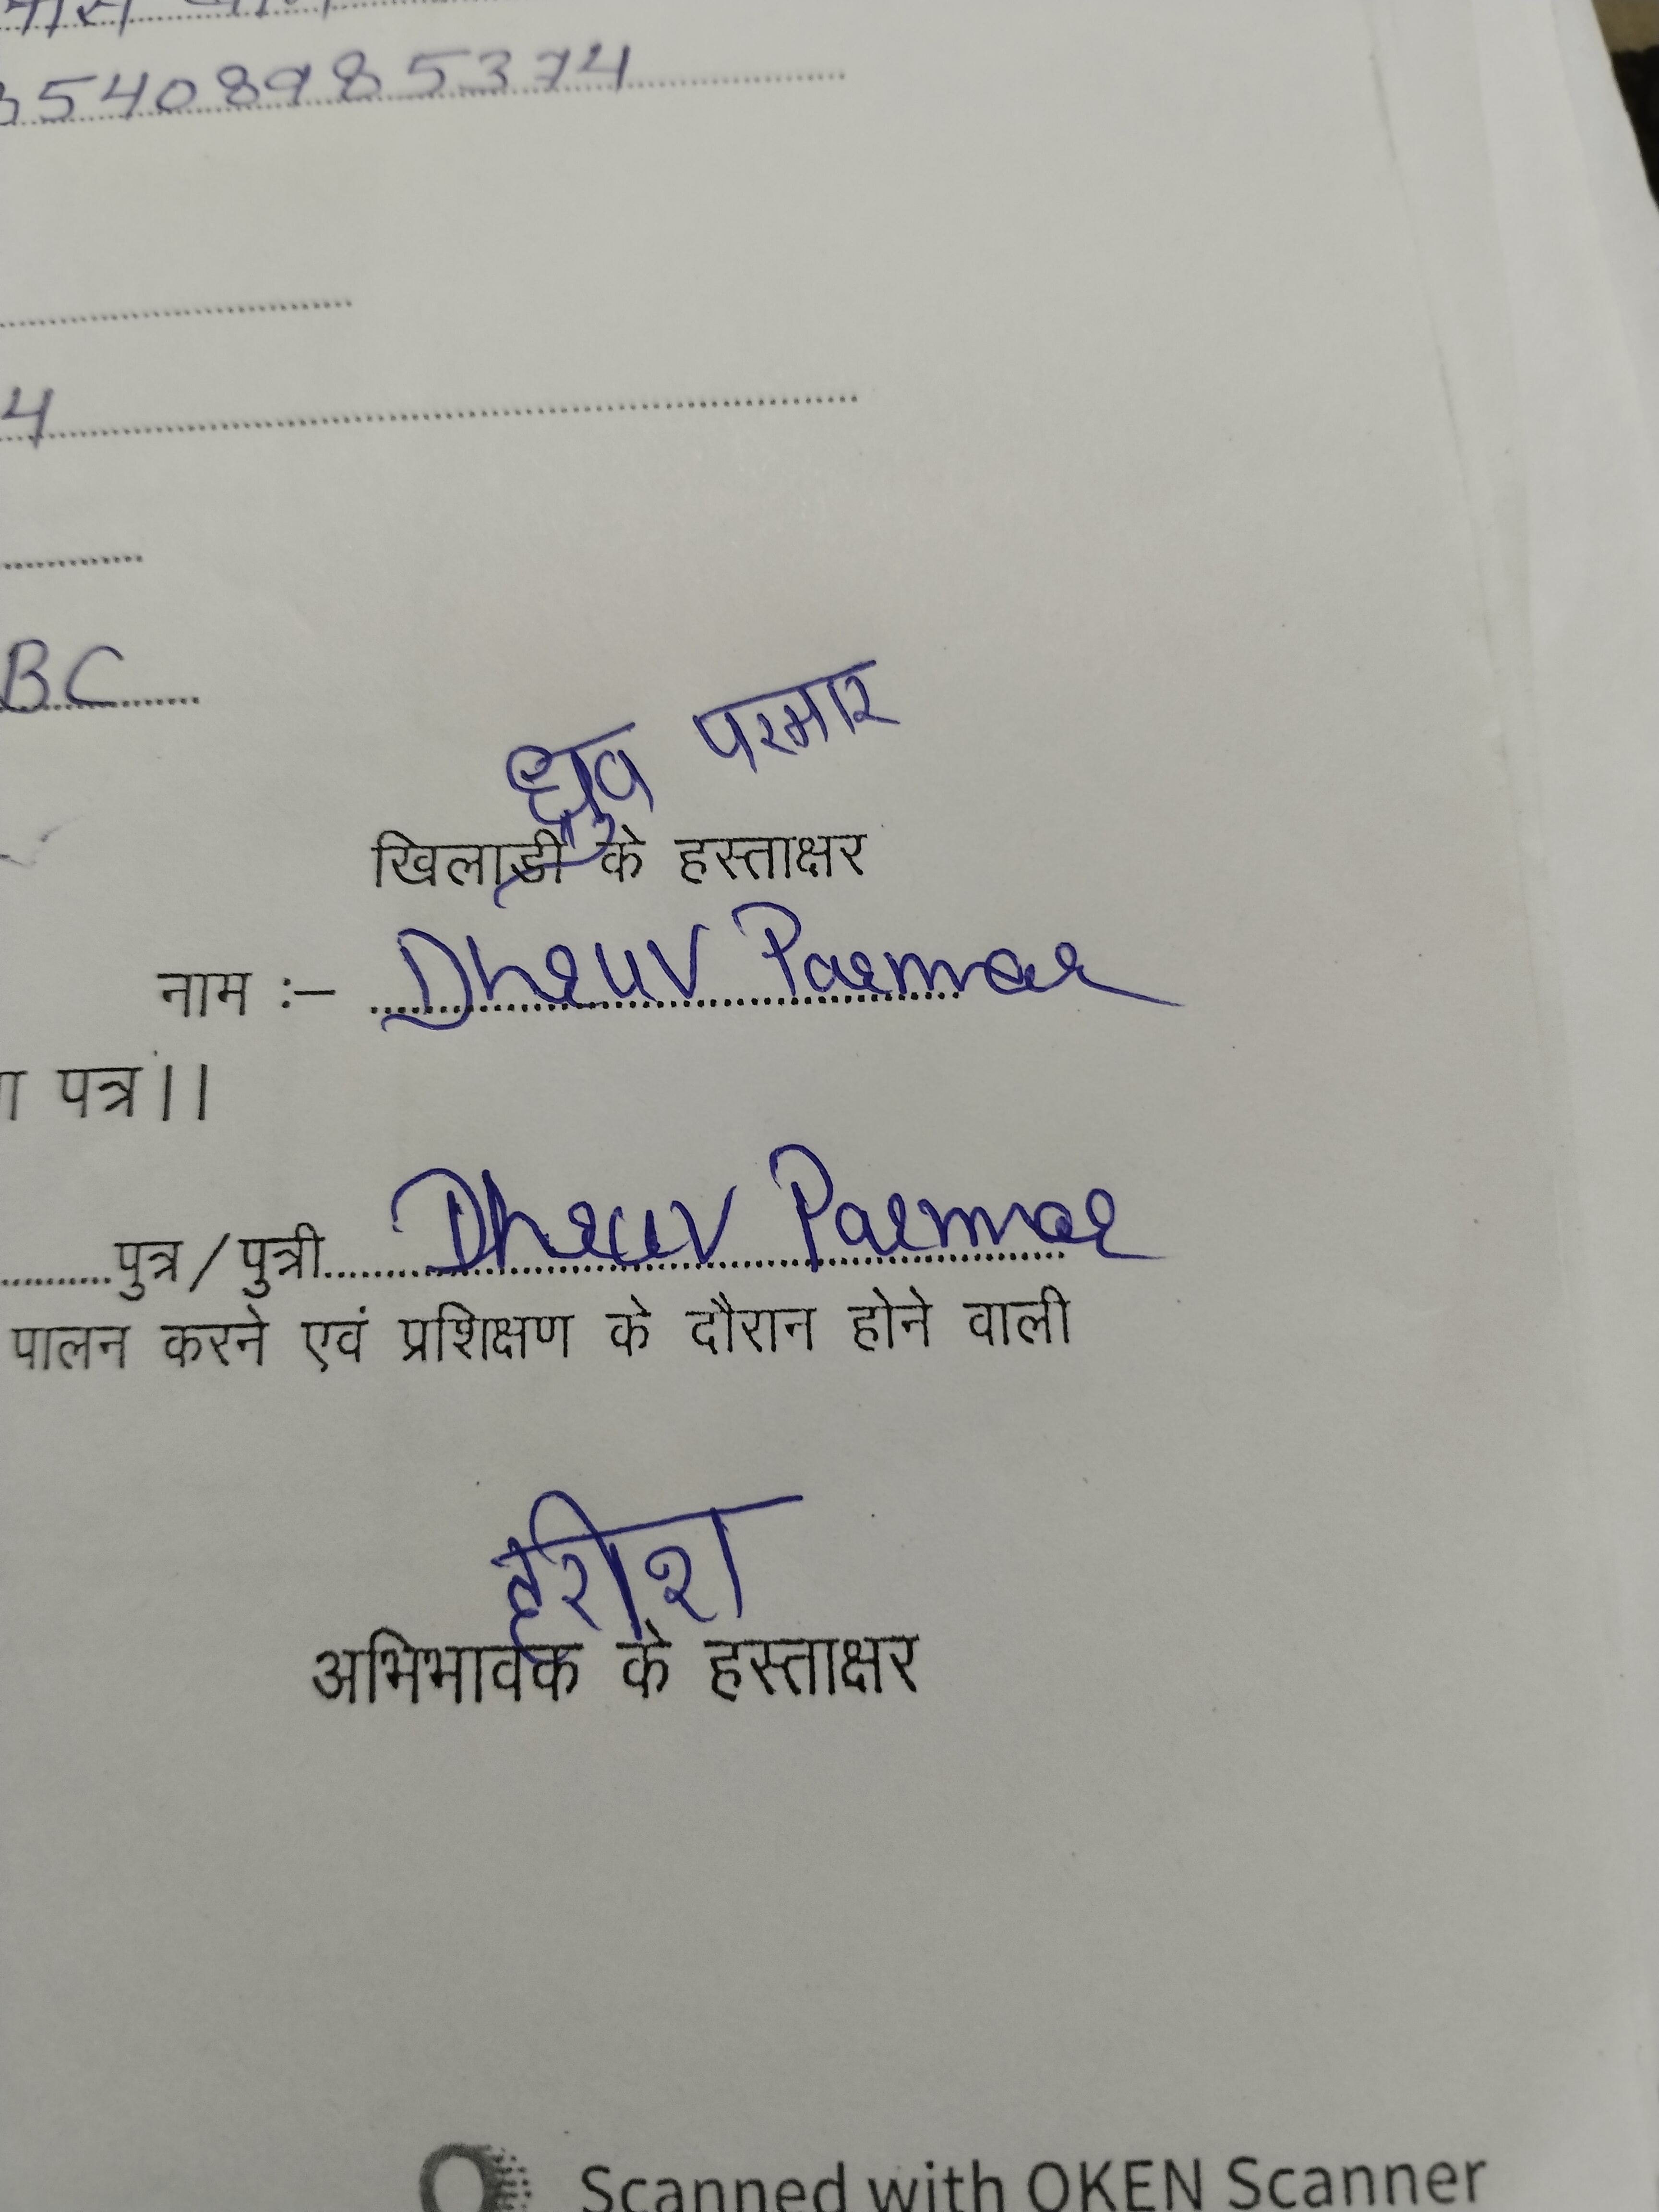 35408985374
4
BC
ध्रुव परमार
खिलाड़ी के हस्ताक्षर
नाम :– Dhruv Parmar
पत्र।।
पुत्र/पुत्री Dhruv Parmar
पालन करने एवं प्रशिक्षण के दौरान होने वाली
हरीश
अभिभावक के हस्ताक्षर
Scanned with OKEN Scanner